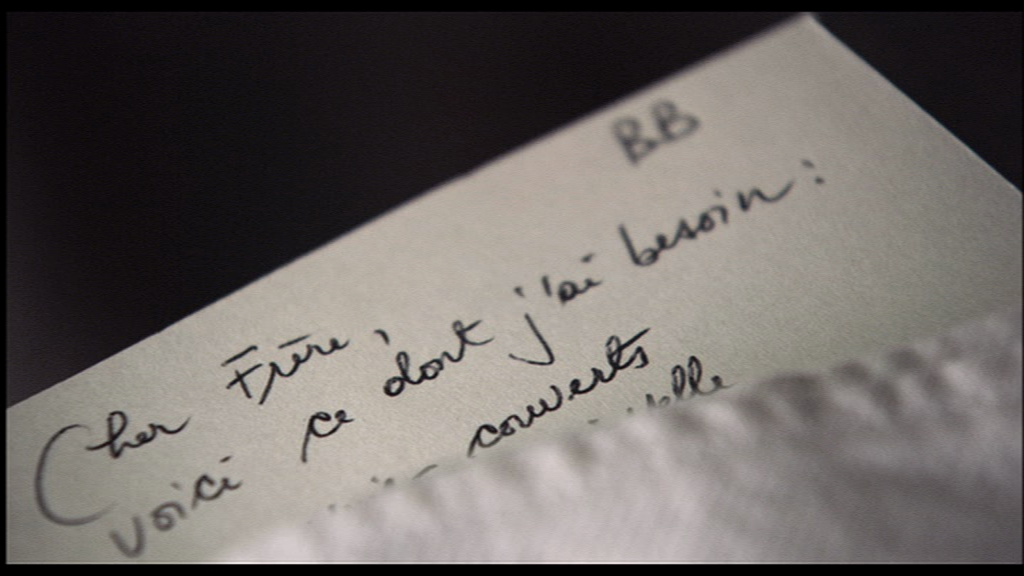 BB
Cher Frère,
voici ce dont j'ai besoin:
couverts